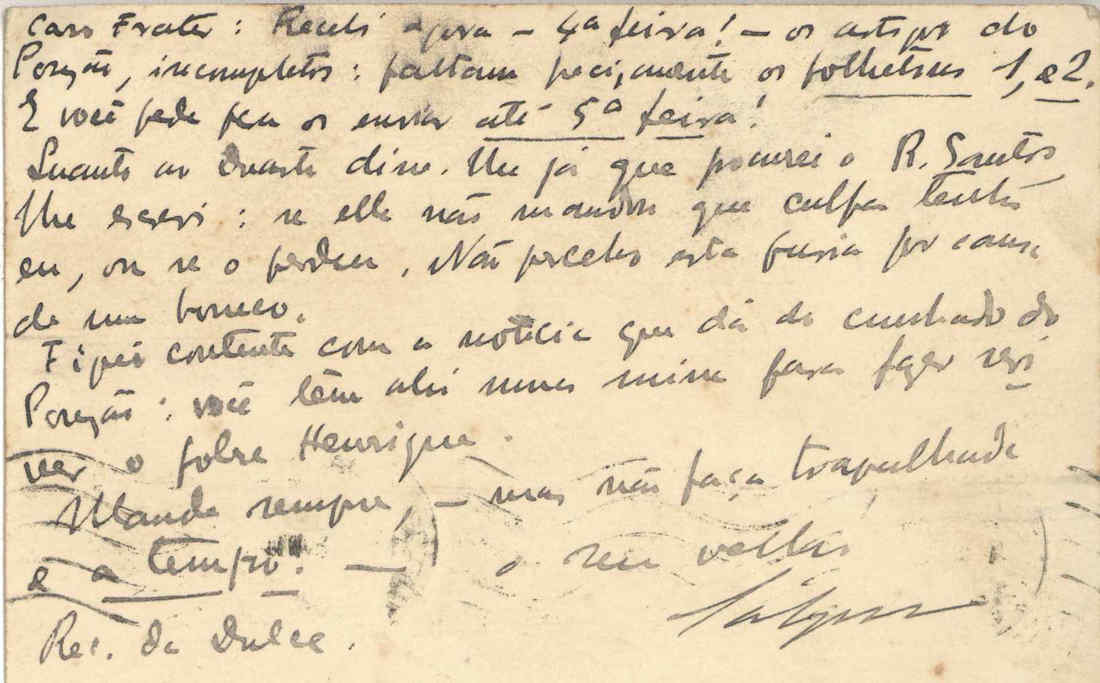 Caro Frater: Recebi agora – 4ª feira! – os artigos do
Porção, incompletos: faltam precisamente os folhetins 1, e 2.
E você pede pra os enviar até 5ª feira!
Quanto ao Duarte dir-lhe já que procurei o R. Santos
lhe escrevi: se elle não mandou que culpa tenho
eu, ou se o perdeu. Não percebo esta furia por causa
de um boneco.
Fiquei contente com a noticia que dá do cunhado do
Porção: você têm ahi uma mina para fazer revi
ver o pobre Henrique.
Mande sempre, – mas não faça trapalhada
e a tempo! — o seu velho
Rec. da Dulce.